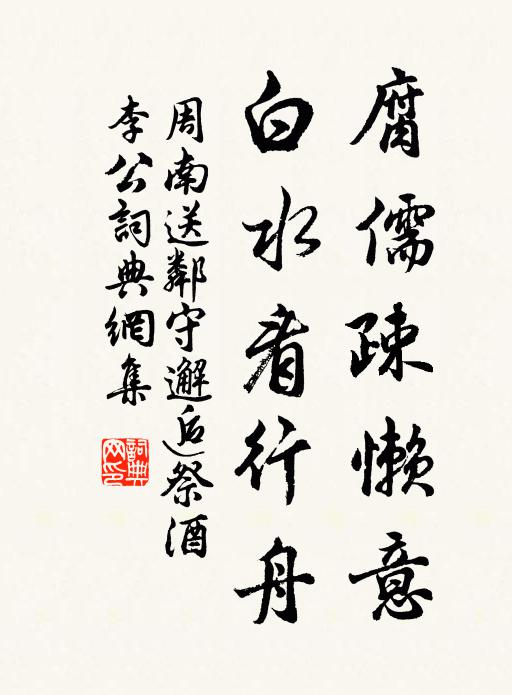 腐儒疎懶意
白水看行舟
周南送鄰守邂逅祭酒
李公詞典網集
詞典
网印